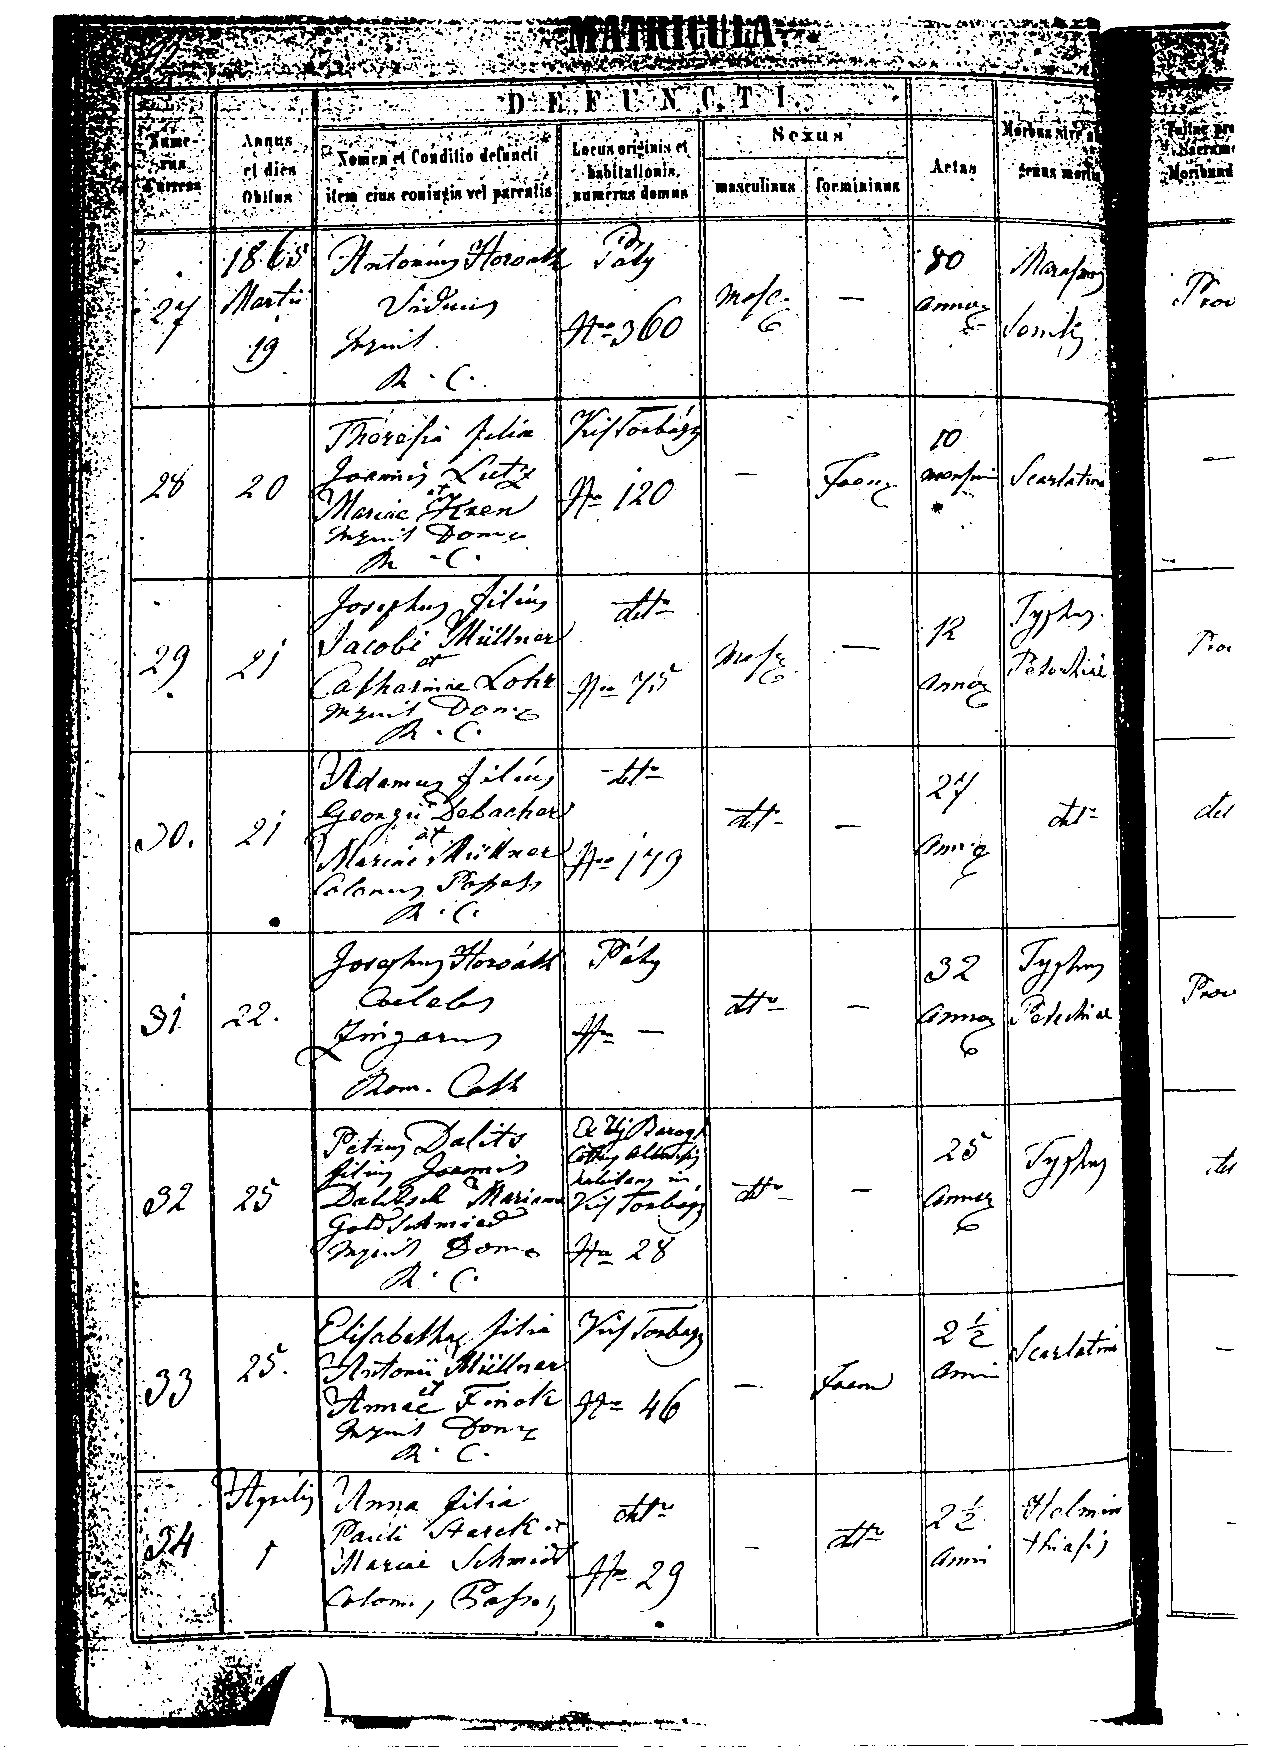 MATRICULA
DEFUNCTI.
Nume-
rus
Currens
Annus
et dies
Obitus
Nomen et Conditio defuncti
item eius coniugis vel parentis
Locus originis et
habitationis,
numerus domus
Sexus
masculinus
foemininus
Aetas
Morbus sive
genus mortis
Sacrame
Moribund
27
1865
Martii
19
Antonius Horváth
Viduus
Inquil.
R. C.
Páty
Nro 360
Masc.
—
80
annor
Marasmus
Senilis
Prov
28
20
Theresia filia
Joannis Lutz
et
Mariae Kren
Inquil Dom
R. C.
Kis Torbágy
No 120
—
Foem
10
mensium
Scarlatina
—
29
21
Josephus filius
Jacobi Müllner
et
Catharinae Lohr
Inquil Dom
R. C.
dtto
Nro 75
Masc
—
12
Annor
Typhus
Petechial
Prov
30.
21
Adamus filius
Georgii Debacher
et
Mariae Müllner
Colonus
R. C.
dtto
Nro 179
dtto
—
27
Annor
dtto
31
22.
Josephus Horváth
Coelebs
Zingarus
Rom. Cath
Páty
Nro —
dtto
—
32
Annor
Typhus
Petechial
Prov
32
25
Petrus Dalits
filius Joannis
Mariana
Goldschmied
Inquil Dom
R. C.
Ex Uj Barogh
habitans in
Kis Torbágy
No 28
dtto
—
25
Annor
Typhus
33
25.
Elisabetha filia
Antonii Müllner
et
Annae Finck
Inquil Dom
R. C.
Kis Torbágy
Nro 46
—
Foem
2 1/2
Anni
Scarlatina
—
34
Aprilis
1
Anna filia
Pauli Starck et
Mariae Schmidt
Colon.,
dtto
Nro 29
—
dtto
2 1/2
Anni
Helmin
thiasis